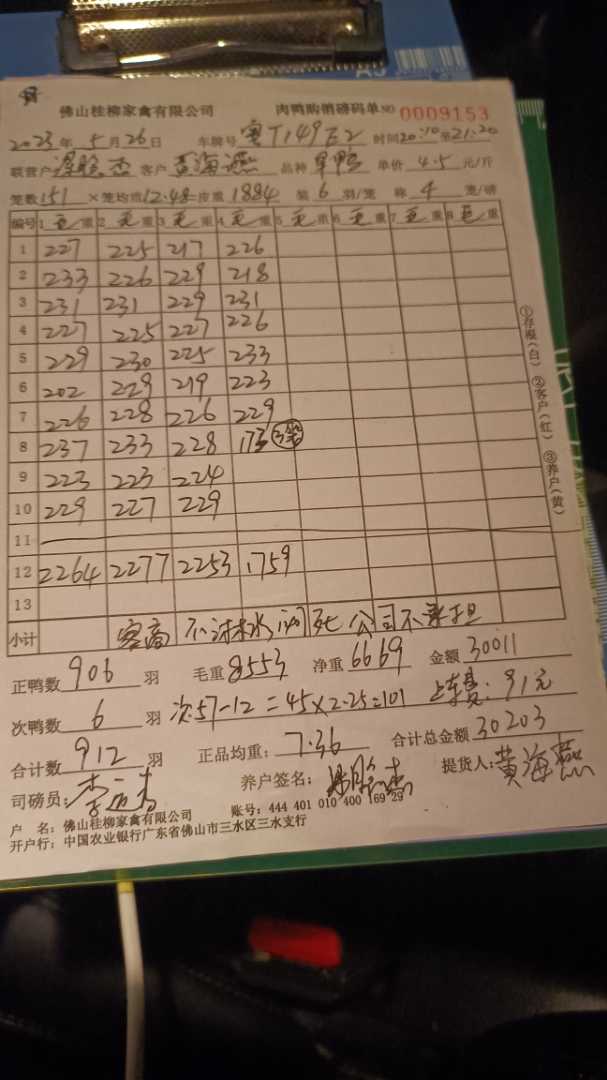 佛山桂柳家禽有限公司 肉鸭购销磅码单 NO 0009153
2023年5月26日 车牌号 粤T149E2 时间20:10至21:20
联营户 客户 黄海燕 品种 单价 4.5 元/斤
笼数151×笼均重12.48=皮重1884 装6羽/笼 称4笼/磅
编号 1毛重 2毛重 3毛重 4毛重 5毛重 6毛重 7毛重 8毛重
1 227 225 217 226
2 233 226 229 218
3 231 231 229 231
4 227 225 227 226
5 229 230 225 233
6 202 229 219 223
7 226 228 226 229
8 237 233 228 173 3笼
9 223 223 224
10 229 227 229
11
12 2264 2277 2253 1759
13
小计 客商 不淋水 死 公司不承担
正鸭数906羽 毛重8553 净重6669 金额30011
次鸭数6羽 次:57-12=45×2.25=101 上车费:91元
合计数912羽 正品均重:7.36 合计总金额30203
司磅员: 养户签名: 提货人:黄海燕
户 名:佛山桂柳家禽有限公司 账号:444 401 010 400 169 29
开户行:中国农业银行广东省佛山市三水区三水支行
①存根(白) ②客户(红) ③养户(黄)